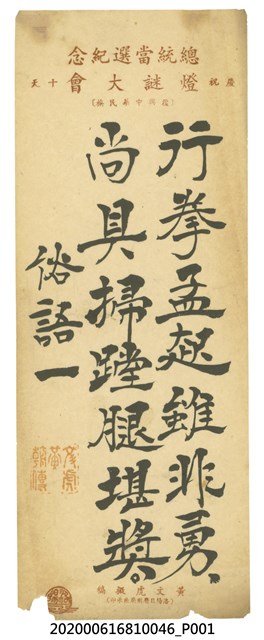 總統當選紀念
慶祝 燈謎大會 十天
(復興中華民族)
行拳孟起雖非勇、
尚具掃蹚腿堪獎。
俗語一
黃文虎擬稿
202000616810046_P001